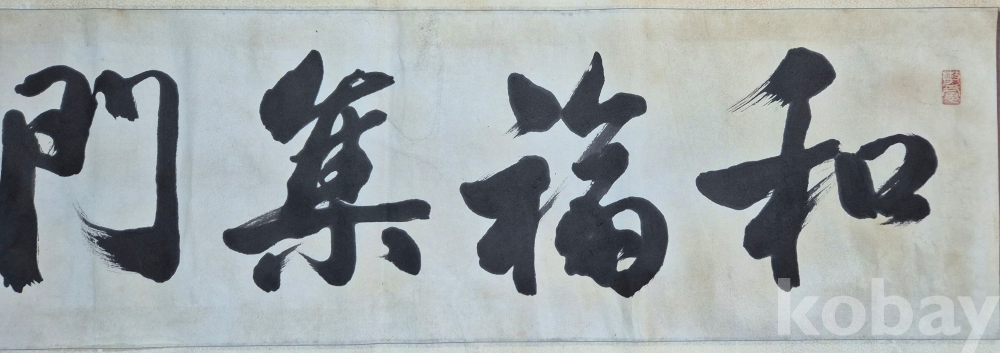 和福集門
kobay